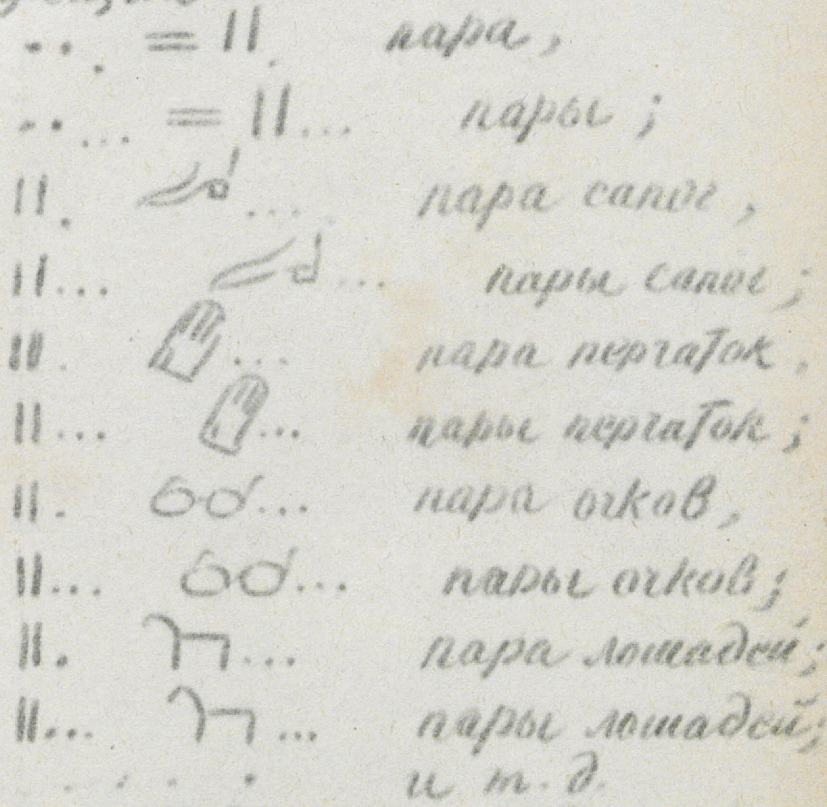 .. . = II. пара,
.. ... = II... пары;
II. ... пара сапог,
II... ... пары сапог;
II. ... пара перчаток,
II... ... пары перчаток;
II. ... пара очков,
II... ... пары очков;
II. ... пара лошадей;
II... ... пары лошадей;
. . . . и т. д.